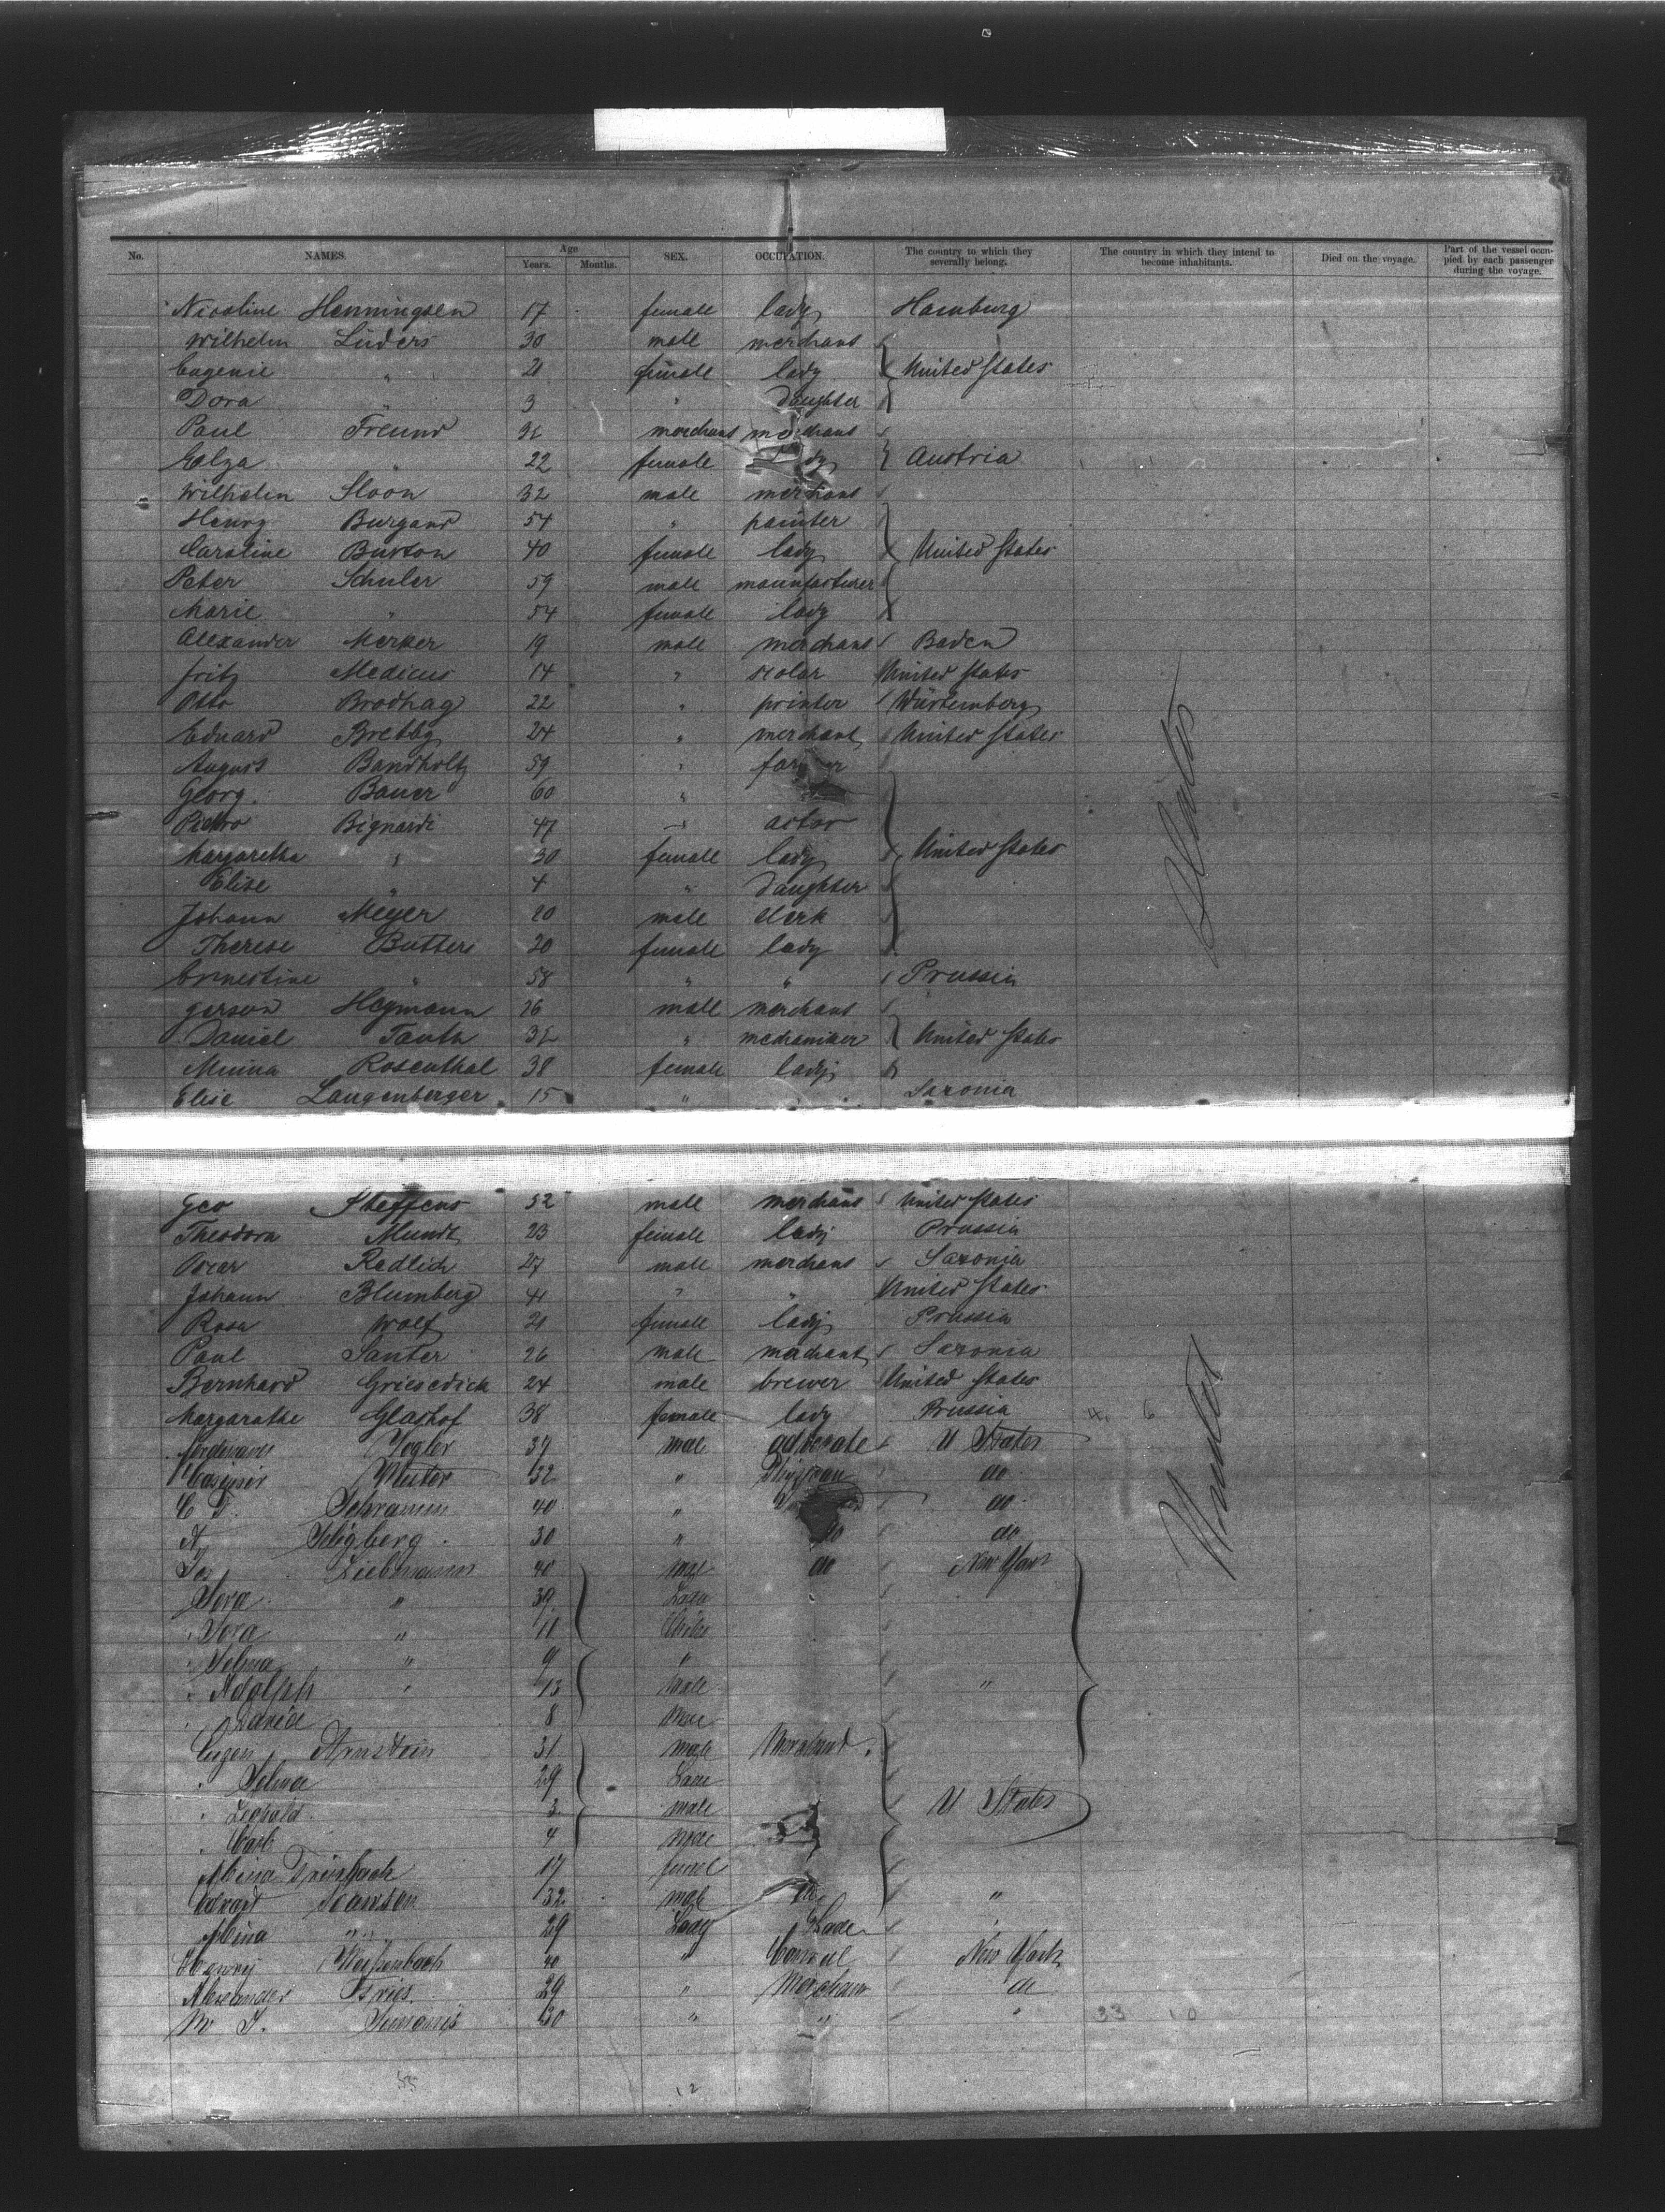 No. NAMES. Age Years. Months. SEX. OCCUPATION. The country to which they severally belong. The country in which they intend to become inhabitants. Died on the voyage. Part of the vessel occupied by each passenger during the voyage.
Nicoline Henningsen 17 female lady Hamburg
Wilhelm Lüders 30 male merchant
Eugenie " 21 female lady United States
Dora " 3 " daughter
Paul Freund merchant merchant
" 22 female Austria
Wilhelm Sloon 32 male merchant
Henry Burgard 54 " painter
Caroline Burton 40 female lady United States
Peter Schuler 59 male manufacturer
Marie " 54 female lady
Alexander Merker 19 male merchant Baden
Fritz Medicus 14 " scolar United States
Otto Brodhag 22 " printer Würtemberg
Eduard 24 " merchant United States
August Bandholtz 59 " farmer
Georg Bauer 60 "
Pietro Bignardi 47 actor
Margaretha " 30 female lady United States
Elise " 4 " daughter
Johann Meyer 20 male clerk
Therese Butters 20 female lady
Ernestine " 58 " " Prussia
gerson Heymann 26 male merchant
Daniel 32 " mechaniker United States
Minna Rosenthal 38 female lady
Elise Langenberger 15 " Saxonia
States
Geo Steffens 52 male merchant United States
Theodora Mundt 23 female lady Prussia
Oscar Redlich 27 male merchant Saxonia
Johann Blumberg 41 " " United States
Rosa Wolf 21 female lady Prussia
Paul Santer 26 male merchant Saxonia
Bernhard Griesedick 24 male brewer United States
Margarathe Glashof 38 female lady Prussia 4. 6
Ferdinand Vogler 37 male advocate U States
Casimir 32 " do
C F. Schramm 40 " do
A Seligberg 30 " do do
Jos Liebmann 40 male do New York
" 39
" 11
Selma " 9 "
Adolph " 13 male "
David 8 male
United
Eugen Arnstein 31 male Merchant
" Selma 29
" Leopold 3 male U States
" Carl 4 male
Mina 17
32 male "
Mina " 29 Lady
Henry 40 " Consul New York
Alexander Fries 29 " Merchant do
30 " " " 33 10
55 12